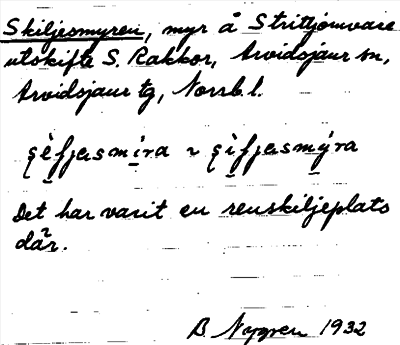 Skiljesmyren, myr å Strittjomvare
utskifte S. Rakkor, Arvidsjaur sn,
Arvidsjaur tg, Norrb. l.
Det har varit en renskiljeplats
där.
B. Nygren 1932